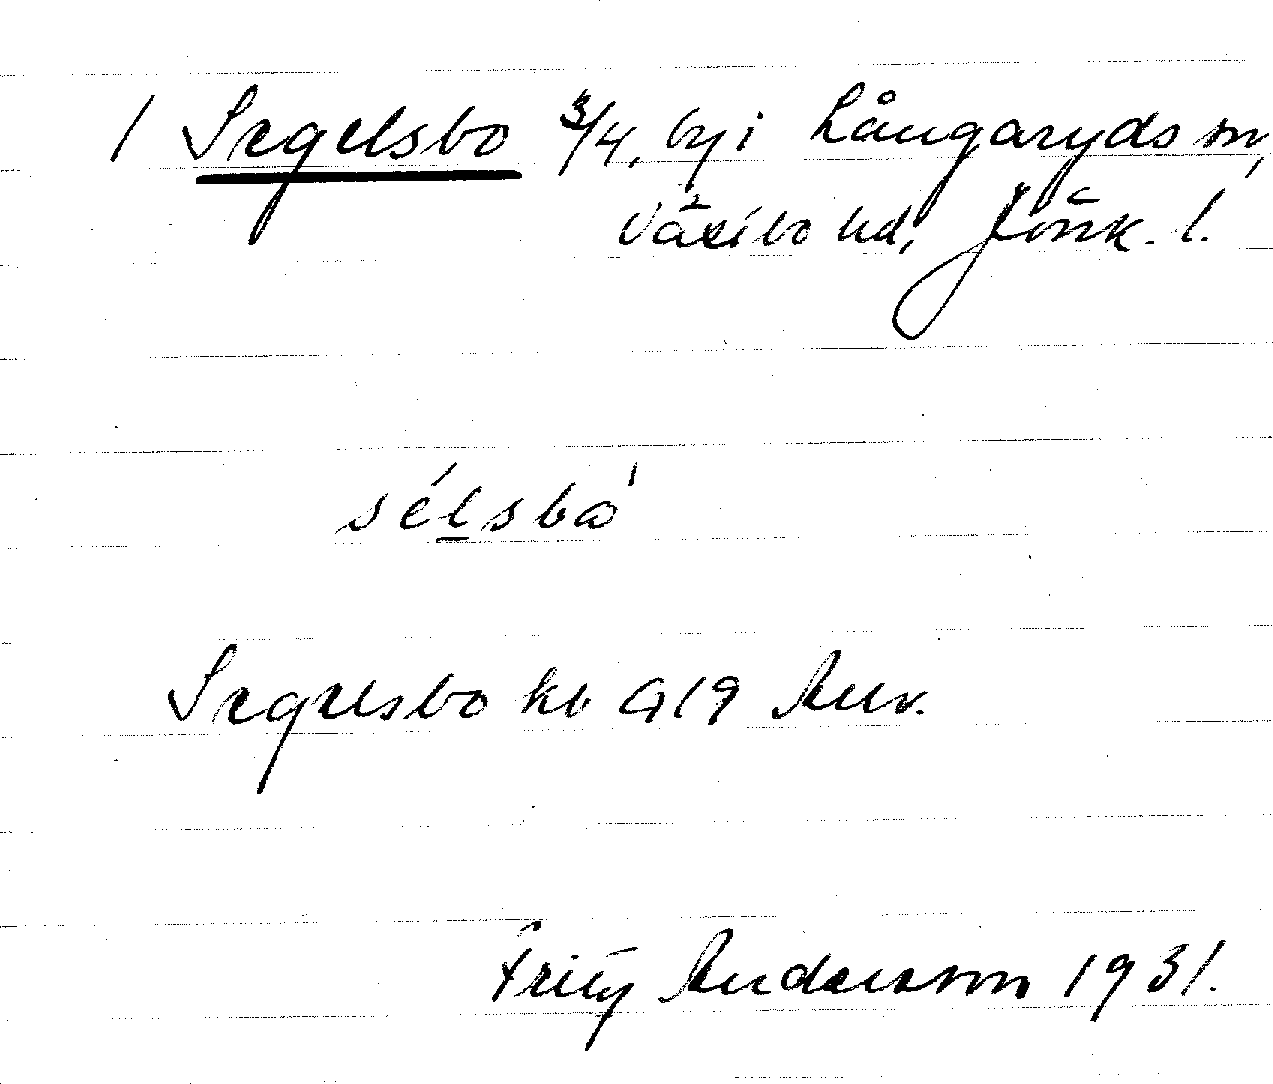 1 Segelsbo 3/4, by i Långaryds sn,
Västbo hd, Jönk. l.
sélsbo'
Segelsbo kb G19 Anv.
Fritz Andersson 1931.